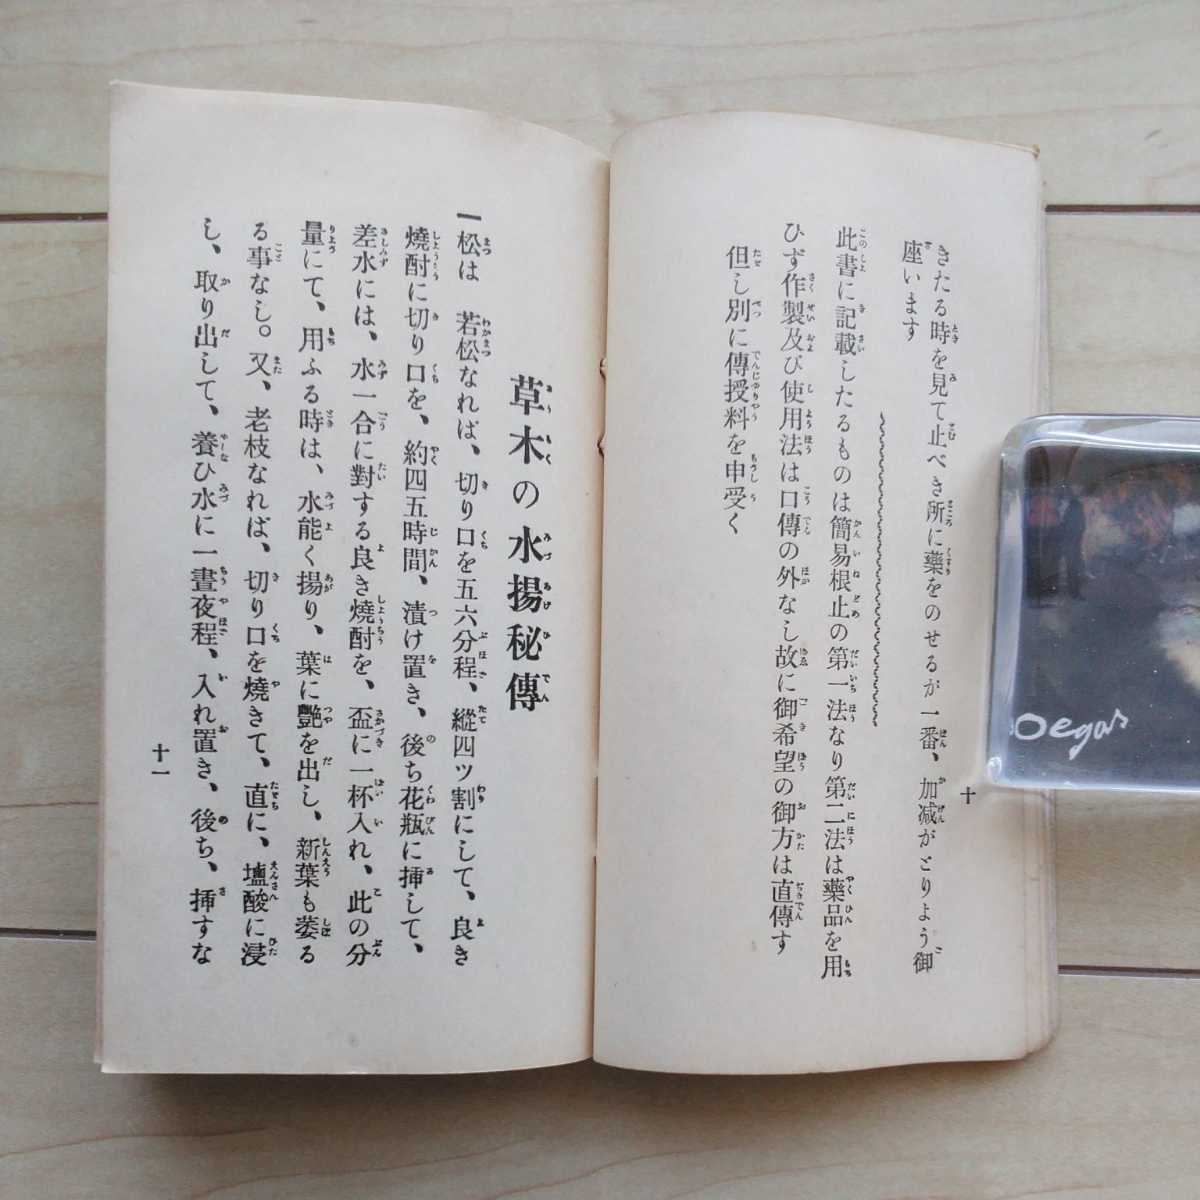 きたる時を見て止べき所に藥をのせるが一番、加减がとりよう御
座います
此書に記載したるものは簡易根止の第一法なり第二法は藥品を用
ひず作製及び使用法は口傳の外なし故に御希望の御方は直傳す
但し別に傳授料を申受く
十
草木の水揚秘傳
一松は 若松なれば、切り口を五六分程、縱四ッ割にして、良き
燒酎に切り口を、約四五時間、漬け置き、後ち花瓶に挿して、
差水には、水一合に對する良き燒酎を、盃に一杯入れ、此の分
量にて、用ふる時は、水能く揚り、葉に艷を出し、新葉も萎る
る事なし。又、老枝なれば、切り口を燒きて、直に、塩酸に浸
し、取り出して、養ひ水に一晝夜程、入れ置き、後ち、挿すな
十一
Degas